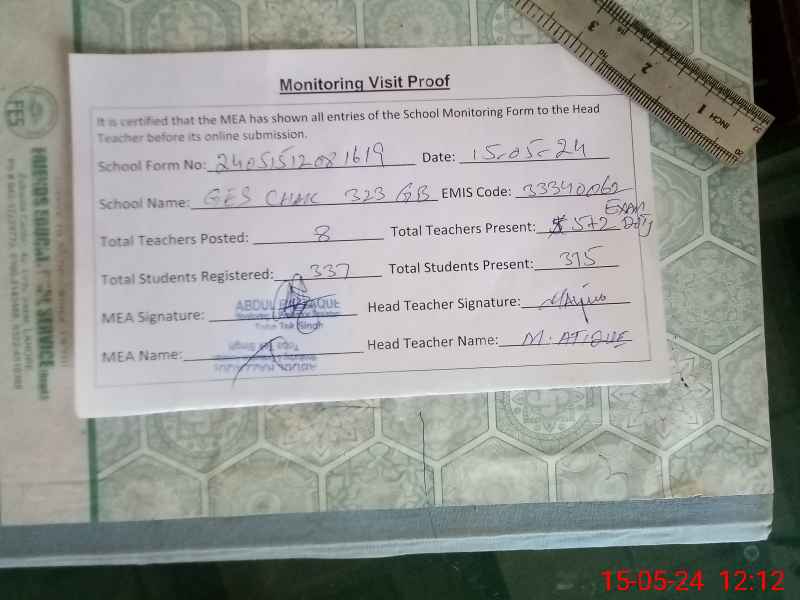 Monitoring Visit Proof
It is certified that the MEA has shown all entries of the School Monitoring Form to the Head
Teacher before its online submission.
School Form No: 2405151208 1619 Date: 15-05-24
School Name: GES CHAK 323 GB EMIS Code: 33340062
Total Teachers Posted: 8 Total Teachers Present: 5+2 Exam Duty
Total Students Registered: 337 Total Students Present: 315
MEA Signature: ABDUL RAZZAQUE Head Teacher Signature:
Toba Tek Singh
MEA Name: Head Teacher Name: M. ATIQUE
INCH 1 2 3
FES
15-05-24 12:12